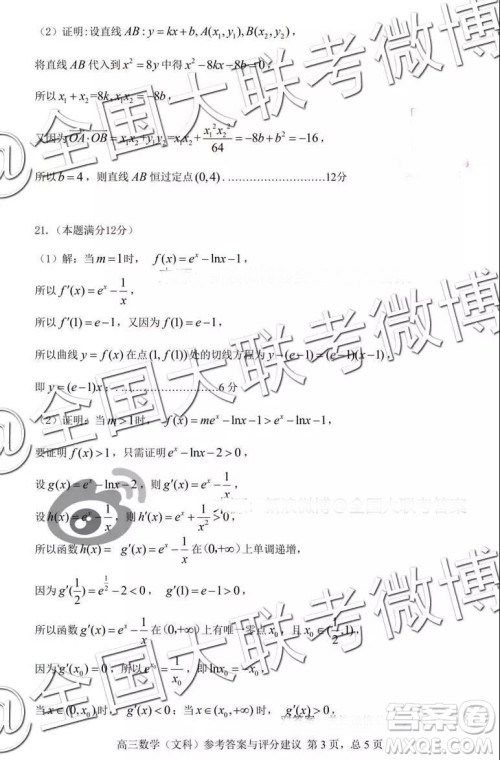 （2）证明:设直线 AB: y = kx + b, A(x₁, y₁), B(x₂, y₂),
将直线 AB 代入到 x² = 8y 中得 x² − 8kx − 8b = 0,
所以 x₁ + x₂ = 8k, x₁x₂ = −8b,
又因为 OA·OB = x₁x₂ + y₁y₂ = x₁x₂ + x₁²x₂²/64 = −8b + b² = −16,
所以 b = 4，则直线 AB 恒过定点 (0, 4) . ………………12分
21.（本题满分12分）
（1）解：当 m = 1 时， f(x) = eˣ − lnx − 1,
所以 f′(x) = eˣ − 1/x,
所以 f′(1) = e − 1，又因为 f(1) = e − 1,
所以曲线 y = f(x) 在点 (1, f(1)) 处的切线方程为 y − (e − 1) = (e − 1)(x − 1),
即 y = (e − 1)x. ………………6 分
（2）证明：当 m > 1 时， f(x) = meˣ − lnx − 1 > eˣ − lnx − 1,
要证明 f(x) > 1，只需证明 eˣ − lnx − 2 > 0,
设 g(x) = eˣ − lnx − 2，则 g′(x) = eˣ − 1/x,
设 h(x) = eˣ − 1/x，则 h′(x) = eˣ + 1/x² > 0,
所以函数 h(x) = g′(x) = eˣ − 1/x 在（0,+∞）上单调递增,
因为 g′(1/2) = e^(1/2) − 2 < 0， g′(1) = e − 1 > 0,
所以函数 g′(x) = eˣ − 1/x 在（0,+∞）上有唯一零点 x₀，且 x₀ ∈ (1/2, 1),
因为 g′(x₀) = 0，所以 e^(x₀) = 1/x₀，即 lnx₀ = −x₀,
当 x ∈ (0, x₀) 时， g′(x) < 0；当 x ∈ (x₀, +∞) 时， g′(x) > 0,
高三数学（文科）参考答案与评分建议 第 3 页，总 5 页
@全国大联考微博
@全国大联考微博
@全国大联考微博